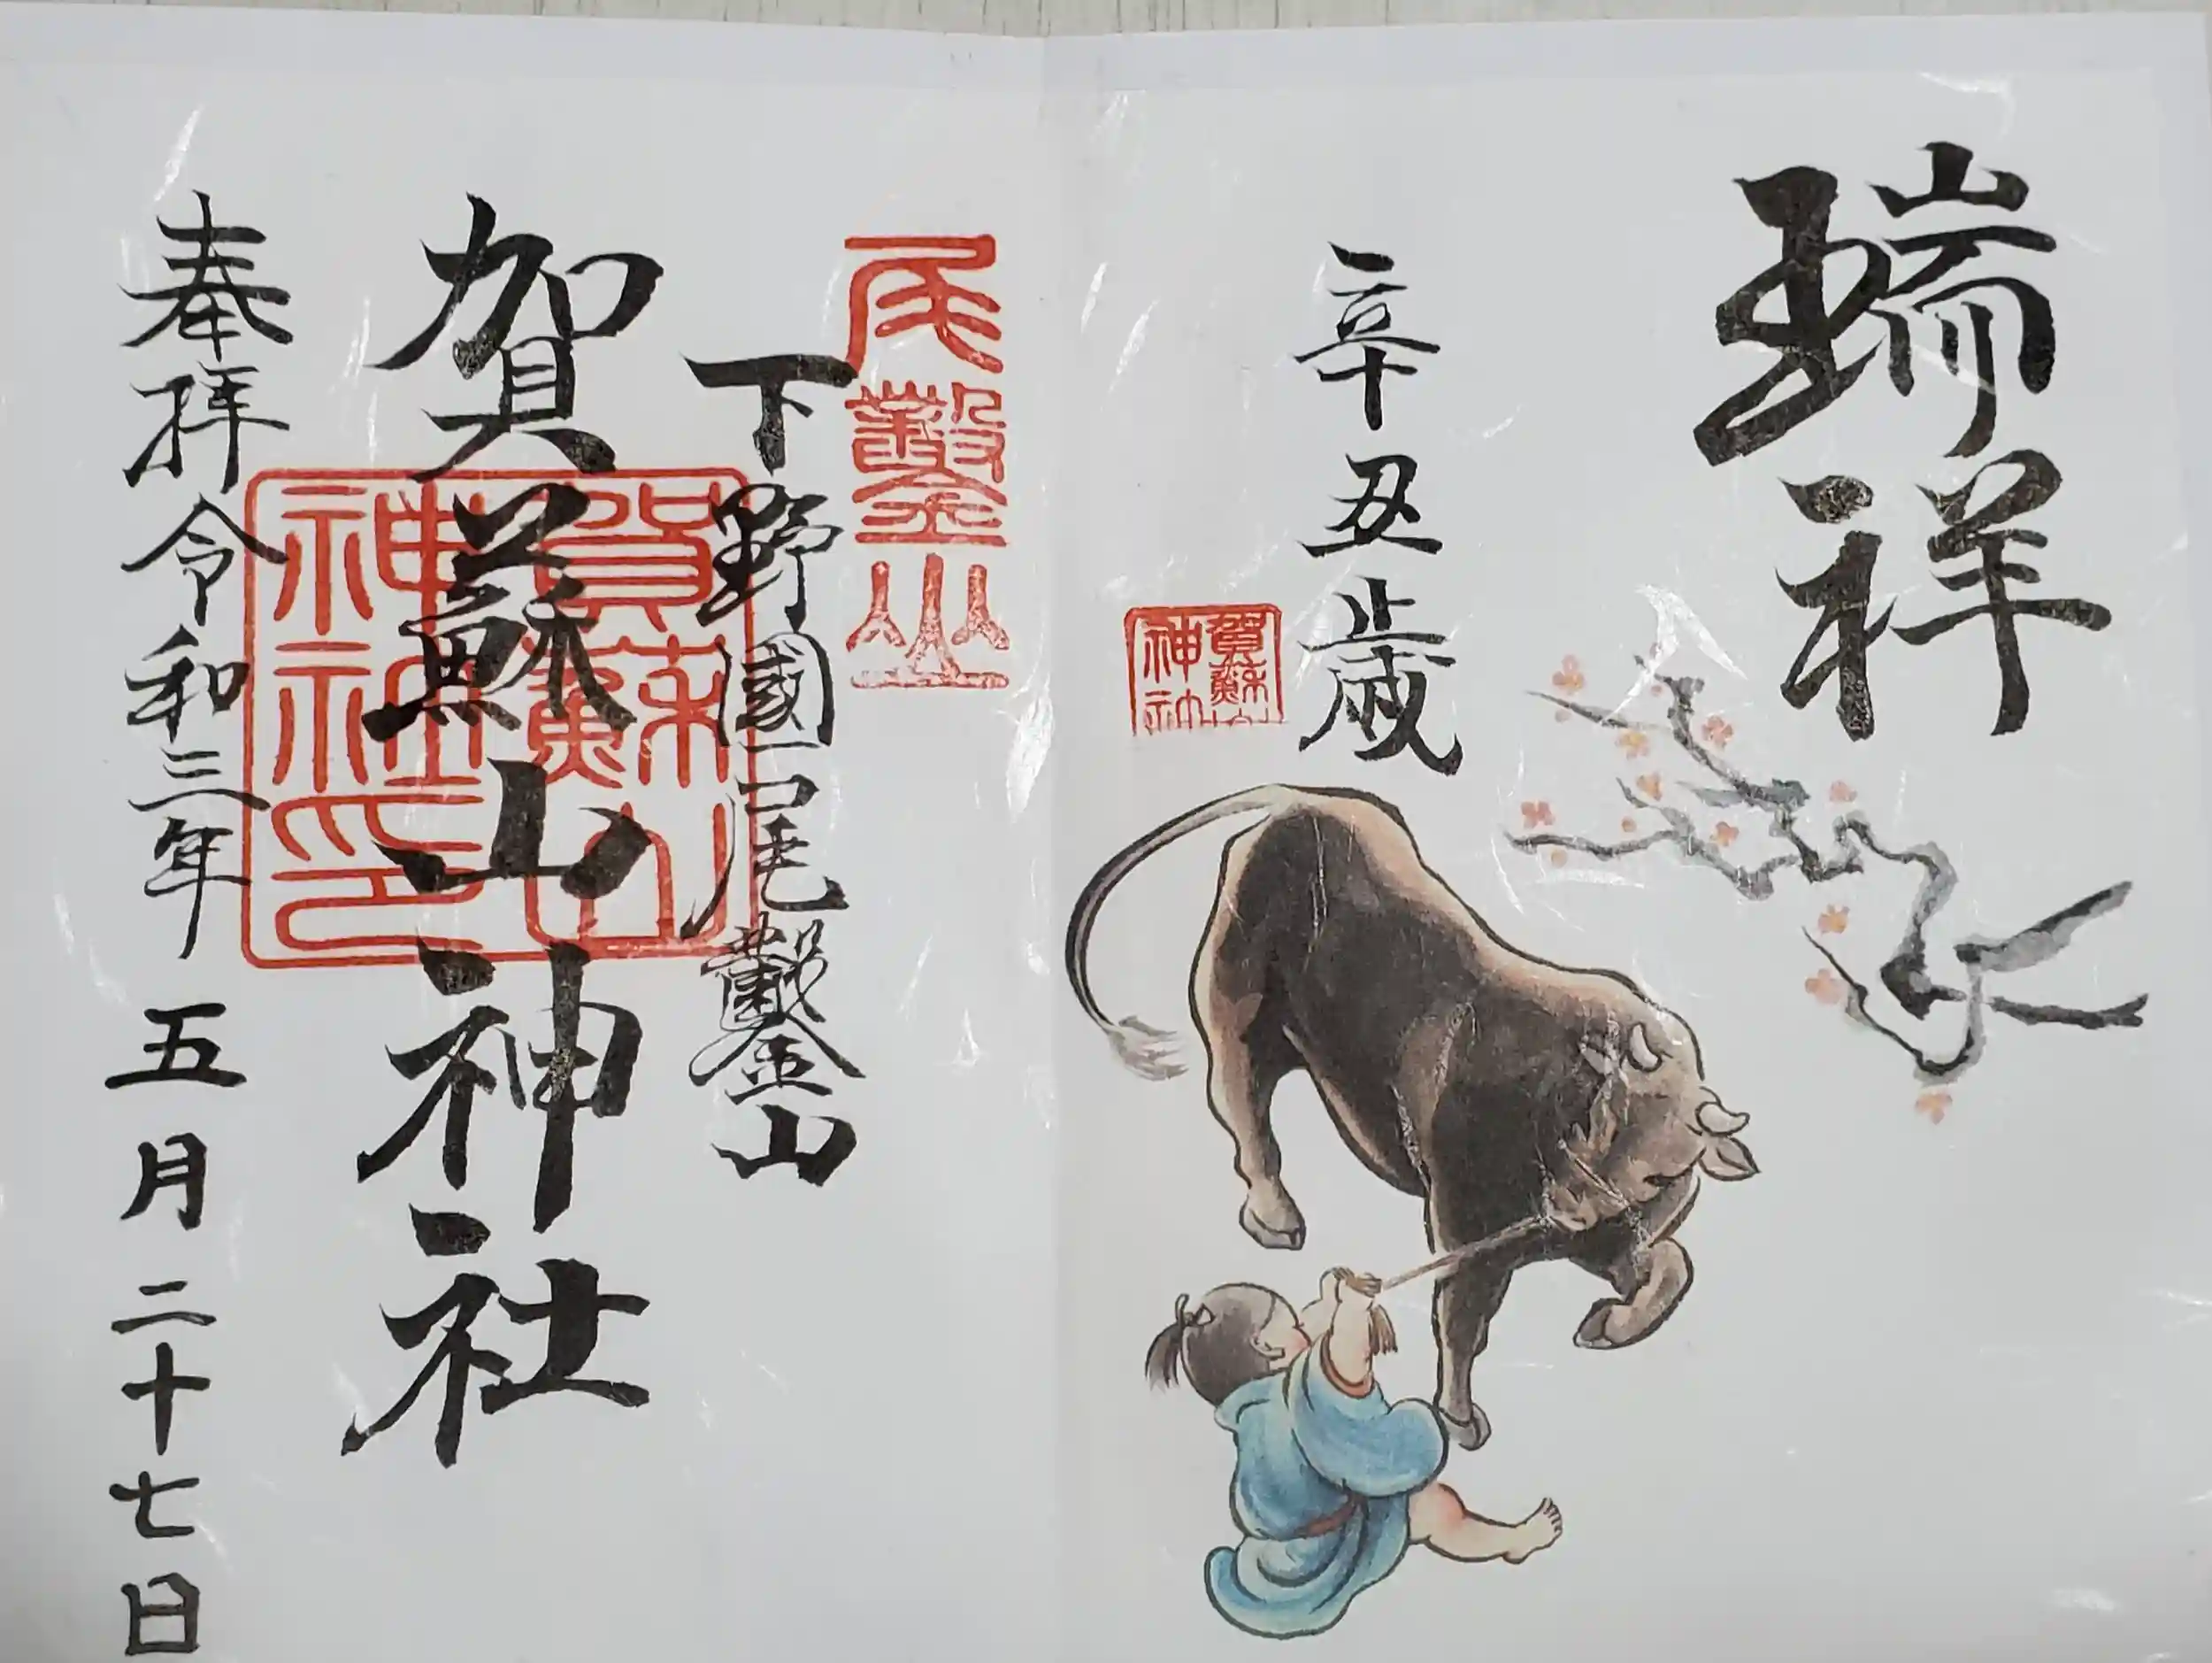 瑞祥
辛丑歳
賀蘇山
神社
尾鑿山
下野國尾鑿山
賀蘇山神社
賀蘇山
神社印
奉拝 令和三年 五月 二十七日